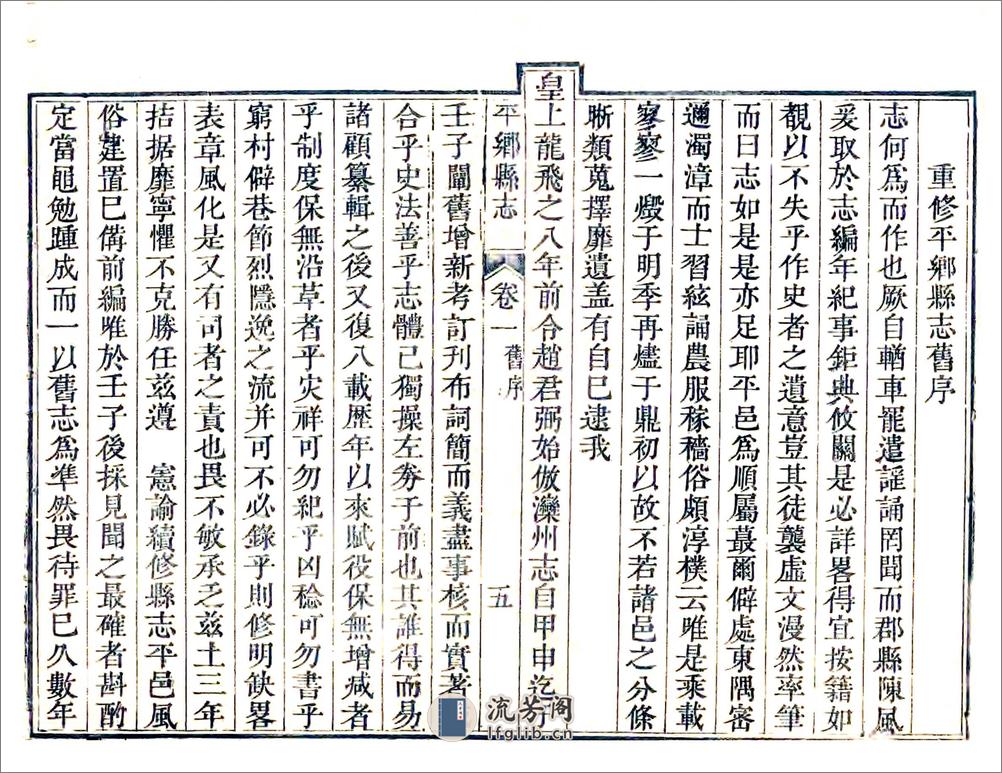 重修平鄉縣志舊序
志何爲而作也厥自輶車罷遣謡誦罔聞而郡縣陳風
爰取於志編年紀事鉅典攸關是必詳畧得宜按籍如
覩以不失乎作史者之遺意豈其徒襲虛文漫然率筆
而曰志如是是亦足耶平邑爲順屬蕞爾僻處東隅審
邇濁漳而士習絃誦農服稼穡俗頗淳樸云唯是乘載
寥寥一燬于明季再燼于鼎初以故不若諸邑之分條
晰類蒐擇靡遺盖有自巳逮我
皇上龍飛之八年前令趙君弼始倣灤州志自甲申迄于
平鄉縣志 卷一 舊序 五
壬子闡舊增新考訂刊布詞簡而義盡事核而實著
合乎史法善乎志體巳獨操左劵于前也其誰得而易
諸顧纂輯之後又復八載歷年以來賦役保無增减者
乎制度保無沿革者乎灾祥可勿紀乎凶稔可勿書乎
窮村僻巷節烈隱逸之流并可不必錄乎則修明缺畧
表章風化是又有司者之責也畏不敏承乏兹土三年
拮据靡寧懼不克勝任兹遵 憲諭續修縣志平邑風
俗建置巳備前編唯於壬子後採見聞之最確者斟酌
定當黽勉踵成而一以舊志爲準然畏待罪巳久數年
流芳阁
lfglib.cn